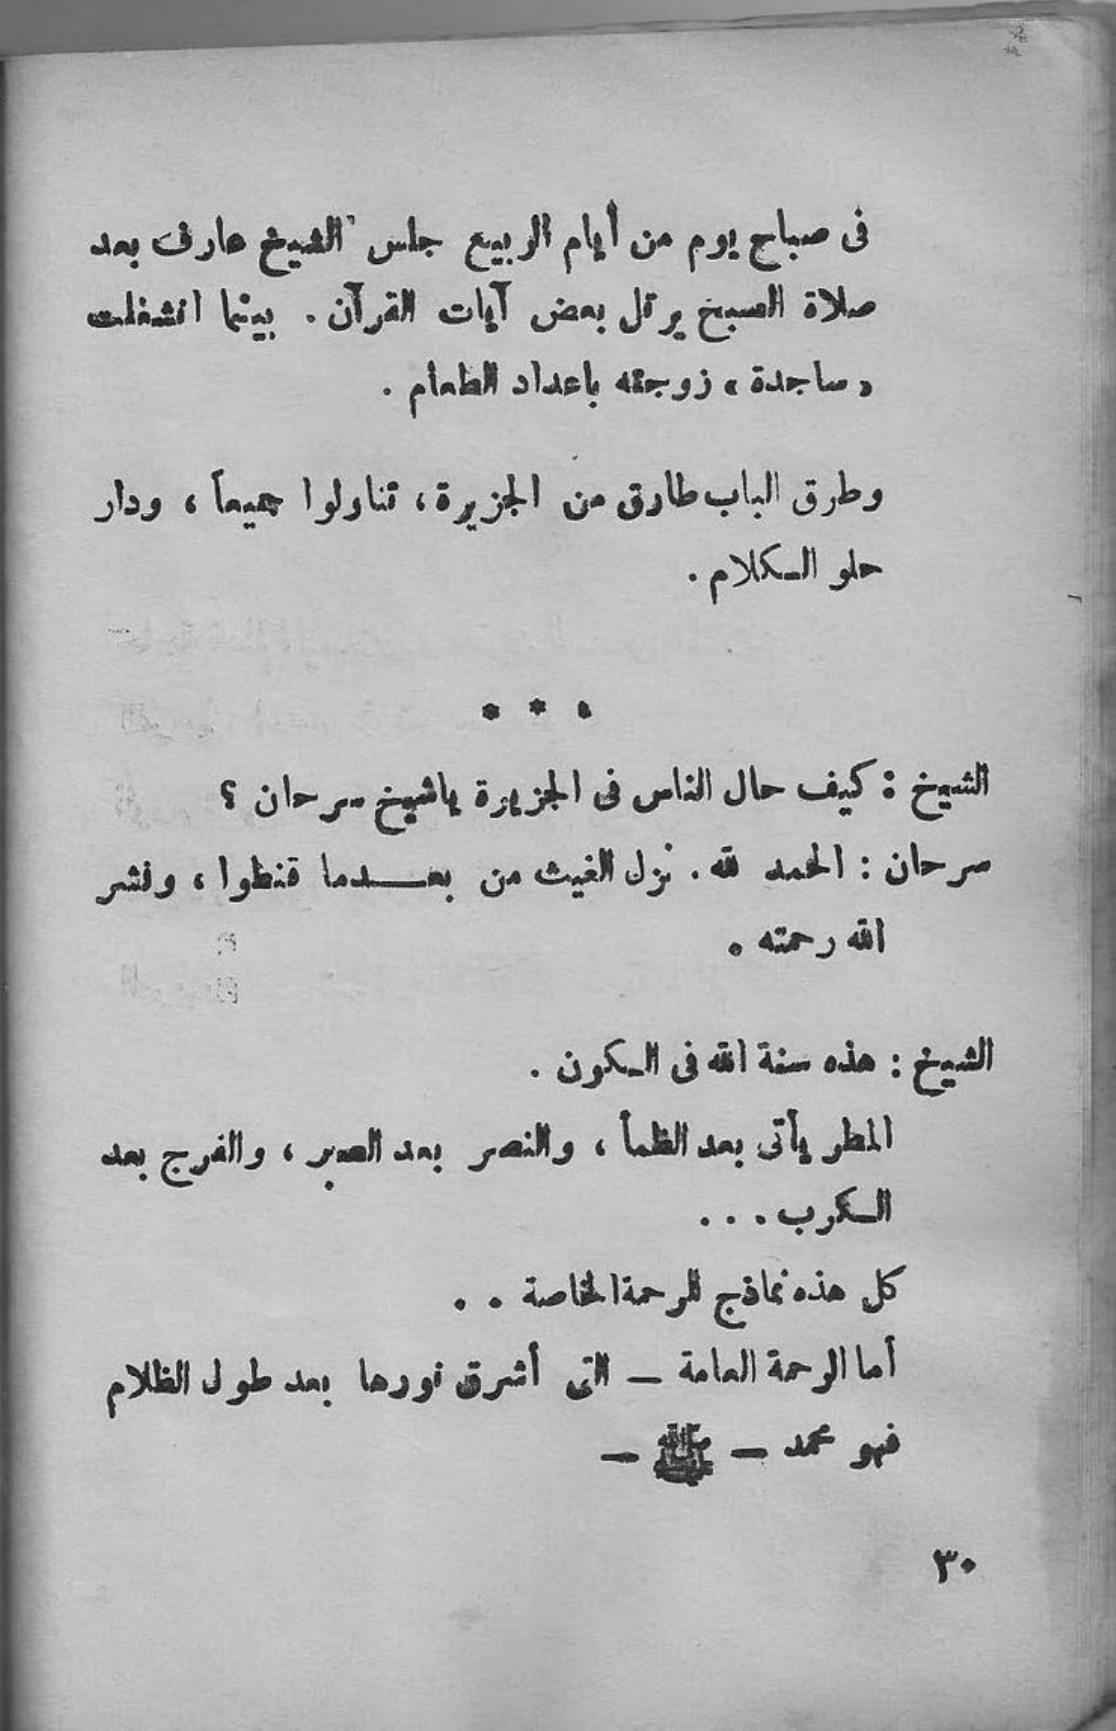 فى صباح يوم من أيام الربيع جلس الشيخ عارف بعد
صلاة الصبح يرتل بعض آيات القرآن . بينما انشغلت
« ساجدة » زوجته باعداد الطعام .
وطرق الباب طارق من الجزيرة ، تناولوا جميعاً ، ودار
حلو الكلام .
* * *
الشيخ : كيف حال الناس فى الجزيرة ياشيخ سرحان ؟
سرحان : الحمد لله . نزل الغيث من بعـــدما قنطوا ، ونشر
الله رحمته .
الشيخ : هذه سنة الله فى الكون .
المطر يأتى بعد الظمأ ، والنصر بعد الصبر ، والفرج بعد
الكرب . . .
كل هذه نماذج للرحمة الخاصة . .
أما الرحمة العامة – التى أشرق نورها بعد طول الظلام
فهو محمد – ﷺ –
٣٠